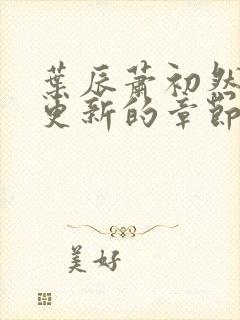 葉辰蕭初然
更新的章節
美好